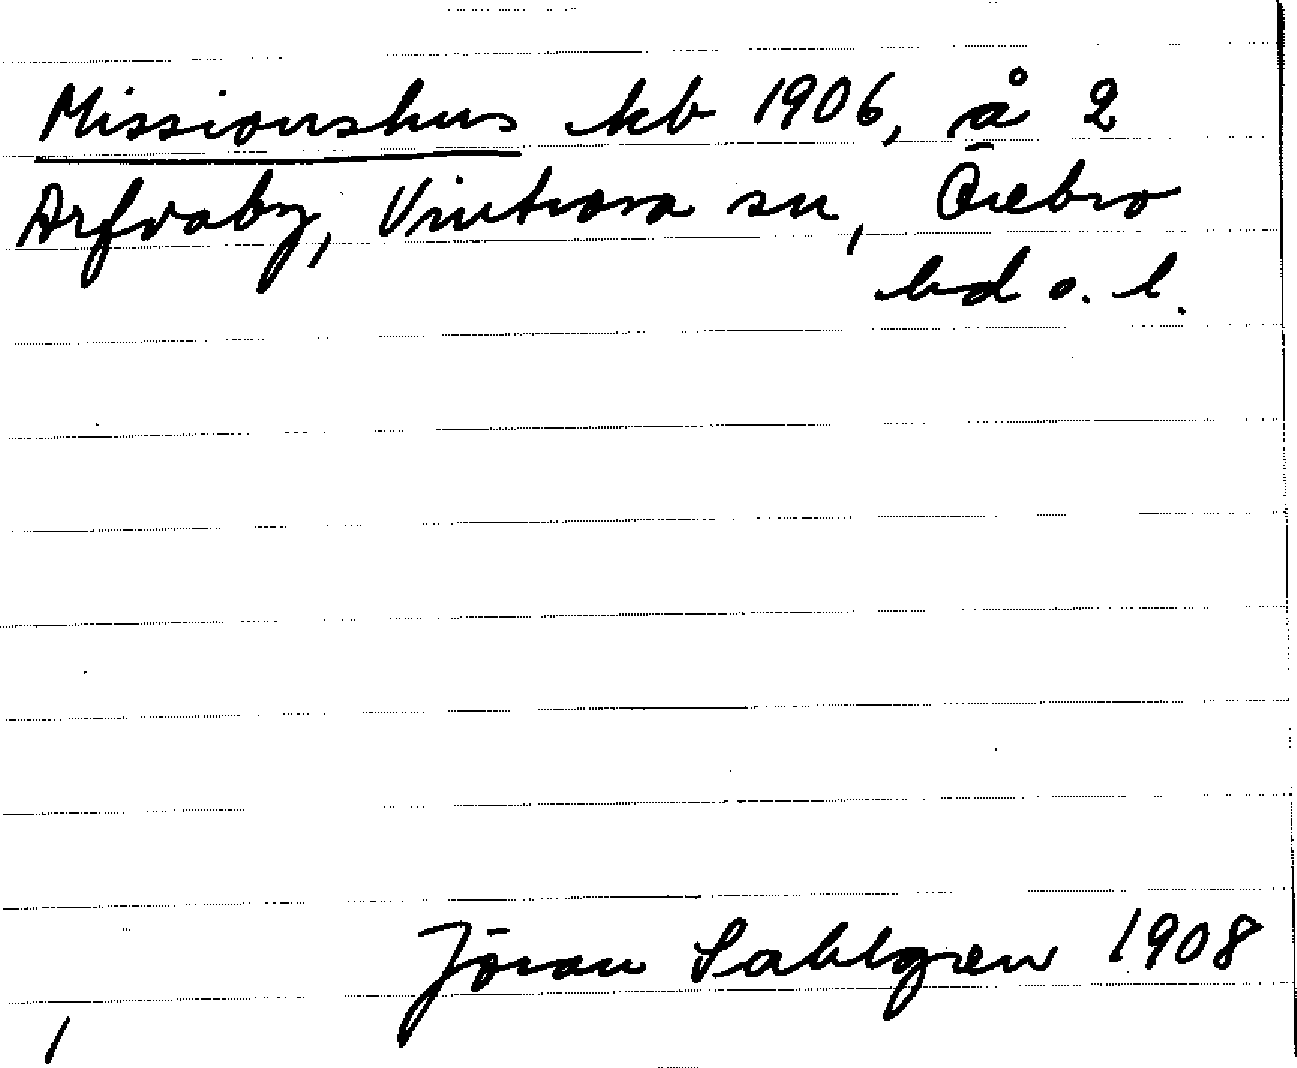 Missionshus kb 1906, å 2
Arfvaby, Vintrosa sn, Örebro
hd o. l.
Jöran Sahlgren 1908
1